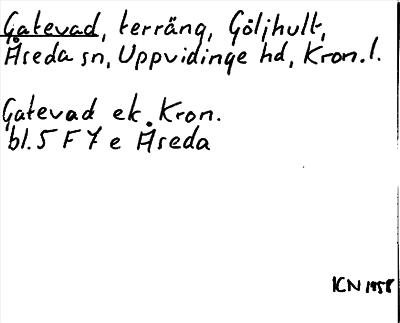 Gatevad, terräng, Göljhult,
Åseda sn, Uppvidinge hd, Kron.l.
Gatevad ek. Kron.
bl. 5 F 7 e Åseda
ICN 1958